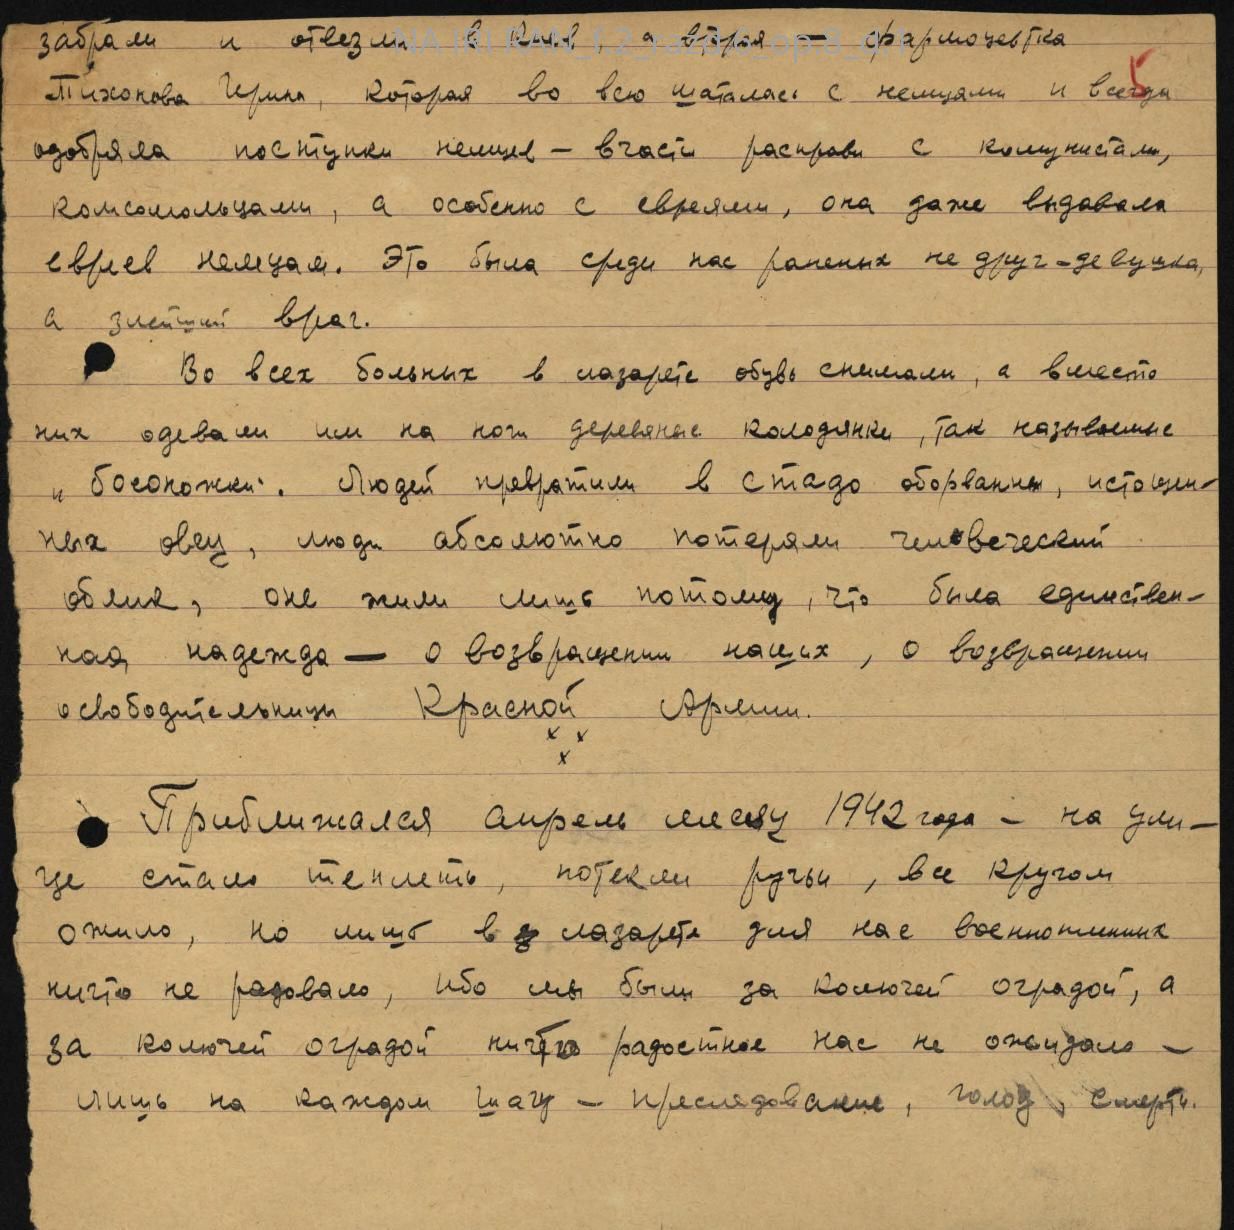 забрали и отвезли в Киев, а вторая — фармоцевтка
5
Тихонова Ирина, которая во всю шаталась с немцями и всегда
одобряла поступки немцев — вчасти расправи с комунистами,
комсомольцами, а особенно с евреями, она даже выдавала
евреев немцам. Это была среди нас раненых не друг-девушка,
а злейший враг.
Во всех больных в лазарете обувь снимали, а вместо
них одевали им на ноги деревяные колодянки, так называемые
„босоножки". Людей превратили в стадо оборванных, истощен-
ных овец, люди абсолютно потеряли человеческий
облик, оне жили лишь потому, что была единствен-
ная надежда — о возвращении наших, о возвращении
освободительницы Красной Армии.
x x
x
Приближался апрель месяц 1942 года — на ули-
це стало теплеть, потекли ручьи, все кругом
ожило, но лишь в лазарете для нас военнопленных
ничто не радовало, ибо мы были за колючей оградой, а
за колючей оградой ничто радостное нас не ожидало —
лишь на каждом шагу — преследование, голод, смерть.